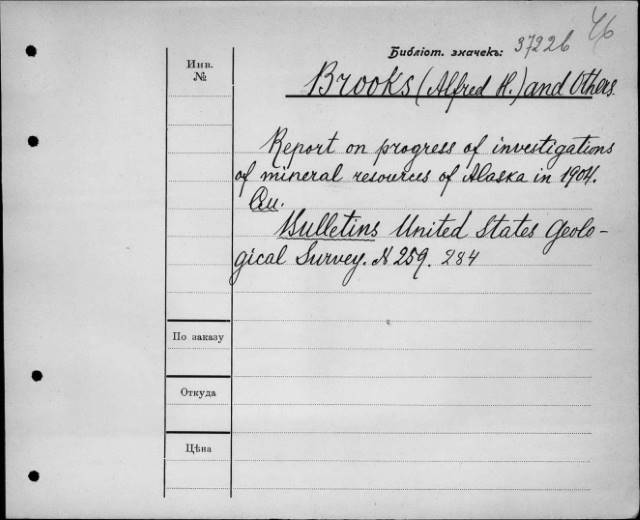 46
Библіот. значекъ: 37226
Инв.
№
Brooks (Alfred H.) and Others.
Report on progress of investigations
of mineral resources of Alaska in 1904.
См.
Bulletins United States Geolo-
gical Survey. N 259. 284
По заказу
Откуда
Цѣна